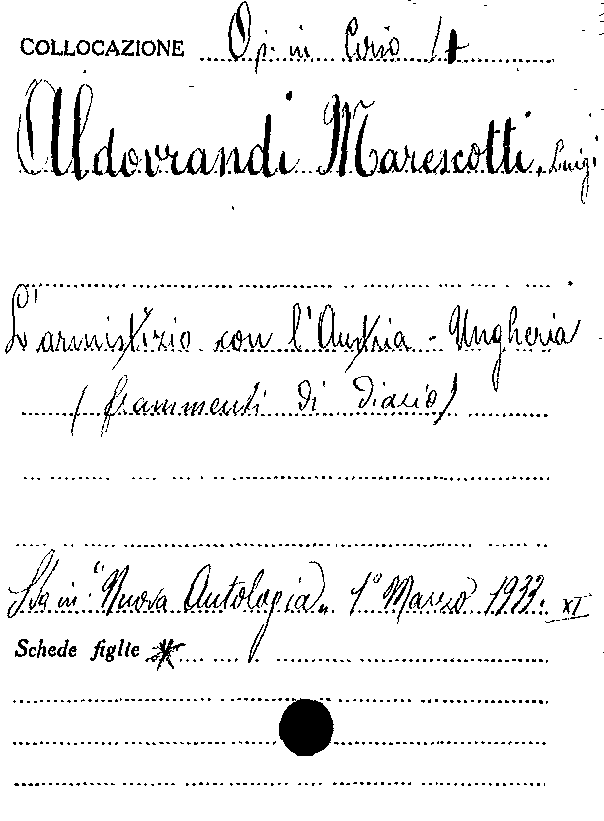 COLLOCAZIONE Op. in Corso 1
Aldovrandi Marescotti, Luigi
L'armistizio con l'Austria - Ungheria
(frammenti di diario)
Sta in "Nuova Antologia„ 1° Marzo 1933. XI
Schede figlie *